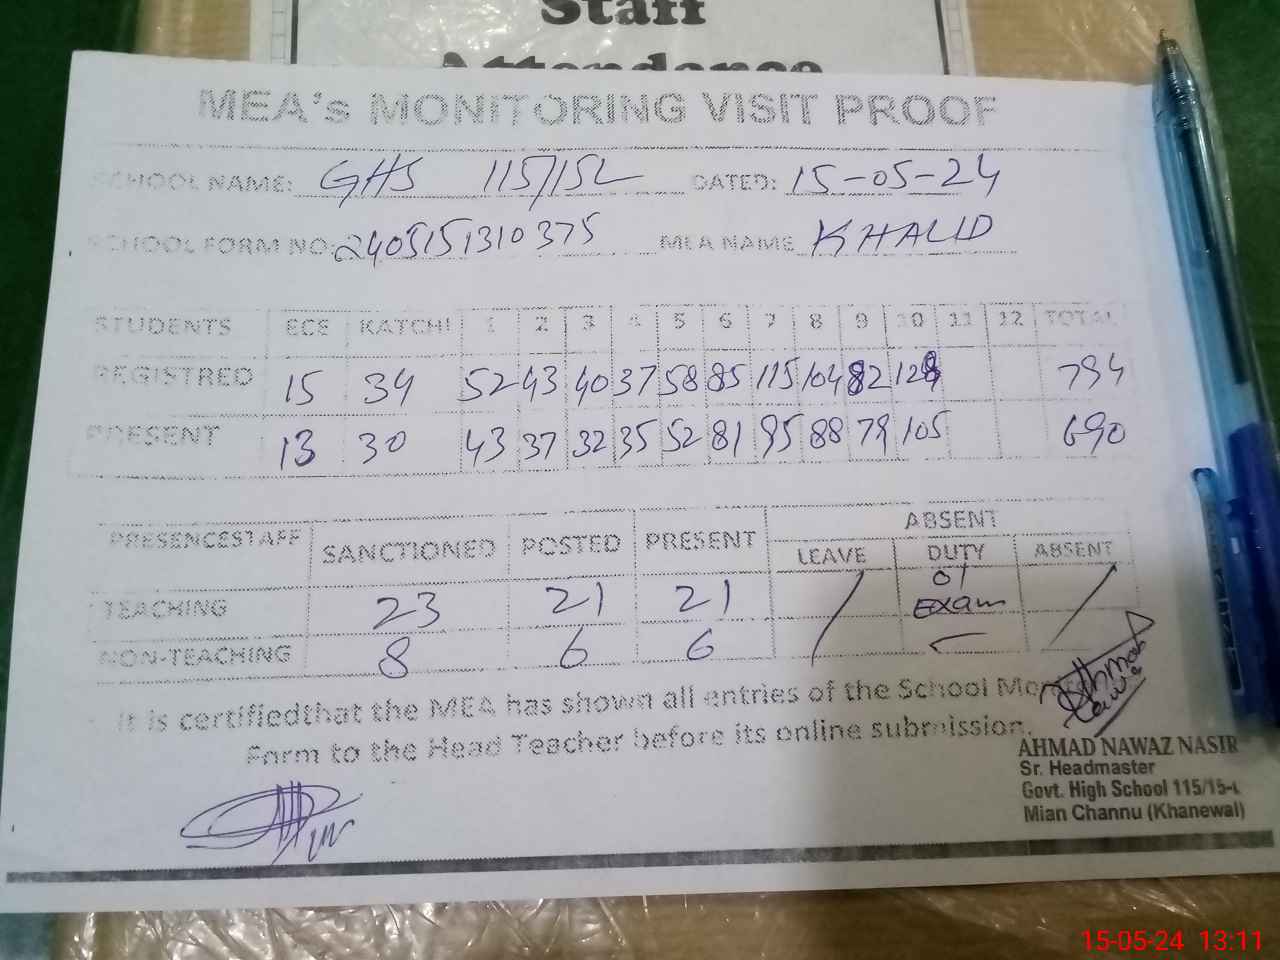 Staff
Attendance
MEA's MONITORING VISIT PROOF
SCHOOL NAME: GHS 115/15L DATED: 15-05-24
SCHOOL FORM NO: 2405151310375 MEA NAME KHALID
STUDENTS ECE KATCHI 1 2 3 4 5 6 7 8 9 10 11 12 TOTAL
REGISTRED 15 34 52 43 40 37 58 85 115 104 82 129 794
PRESENT 13 30 43 37 32 35 52 81 95 88 79 105 690
PRESENCESTAFF SANCTIONED POSTED PRESENT ABSENT
LEAVE DUTY ABSENT
TEACHING 23 21 21 01 Exam
NON-TEACHING 8 6 6
It is certifiedthat the MEA has shown all entries of the School
Form to the Head Teacher before its online submission.
AHMAD NAWAZ NASIR
Sr. Headmaster
Govt. High School 115/15-L
Mian Channu (Khanewal)
15-05-24 13:11